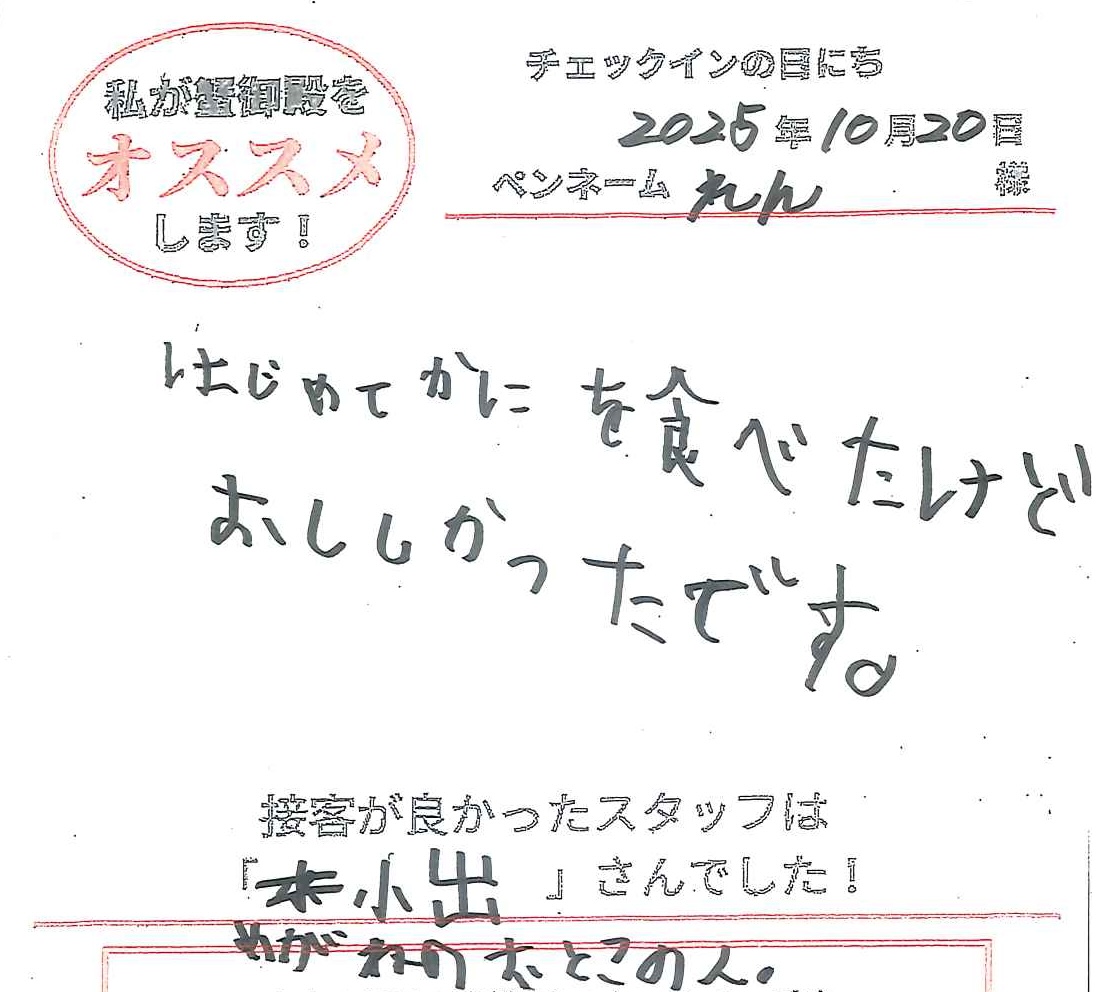 私が蟹御殿を
オススメ
します！
チェックインの日にち
2025年10月20日
ペンネーム れん 様
はじめてかにを食べたけど
おししかったです。
接客が良かったスタッフは
「小出」さんでした！
めがねのおとこの人。